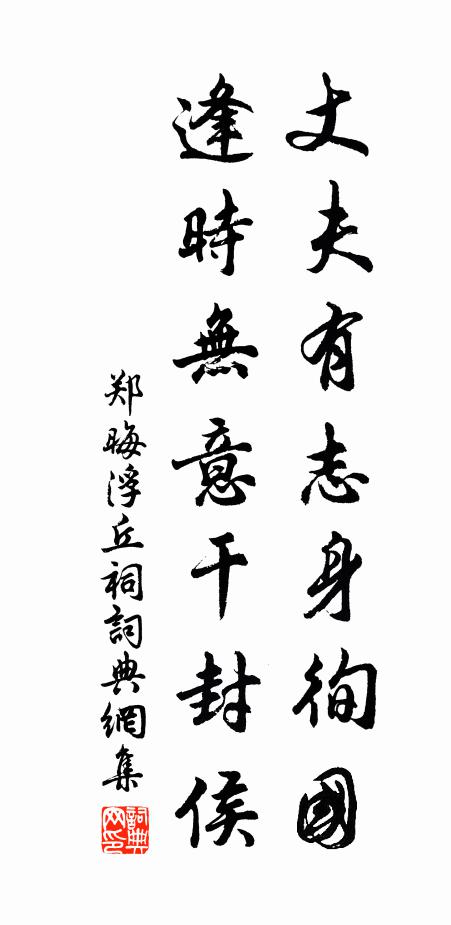 丈夫有志身徇國
逢時無意干封侯
郑晦浮丘祠詞典網集
詞典网印